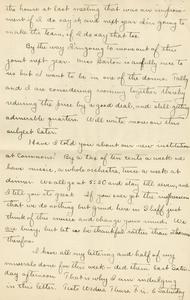 the house at last meeting that was an improve-
ment if I do say it and next year I'm going to
make the team, if I do say that too.
By the way I'm going to move out of this
joint next year. Miss Barlow is awfully nice to
us but I want to be in one of the dorms. Tatty
and I are considering rooming together, thereby
reducing the price by a good deal, and still getting
admirable quarters. Will write more on this
subject later.
Have I told you about our new institution
at Commons? By a tax of ten cents a week we
have music, a whole orchestra, twice a week at
dinner. We all go at 5:30 and stay till seven, and
I tell you its great. If you ever get the impression
that we do nothing but grind here in
think of this music and change your minds. We
are busy, but let us be thankful rather than
therefor.
I have all my lettering and half of my
minerals done for this week - did them last Satur-
day afternoon. That's why I am indulging
in this letter. Tests Wednes. Thurs. Fri. & Saturday